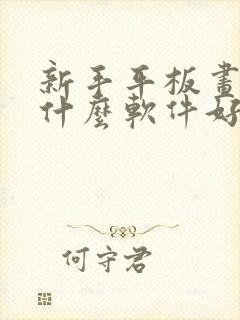 新手平板畫
什麼軟件好
何守君